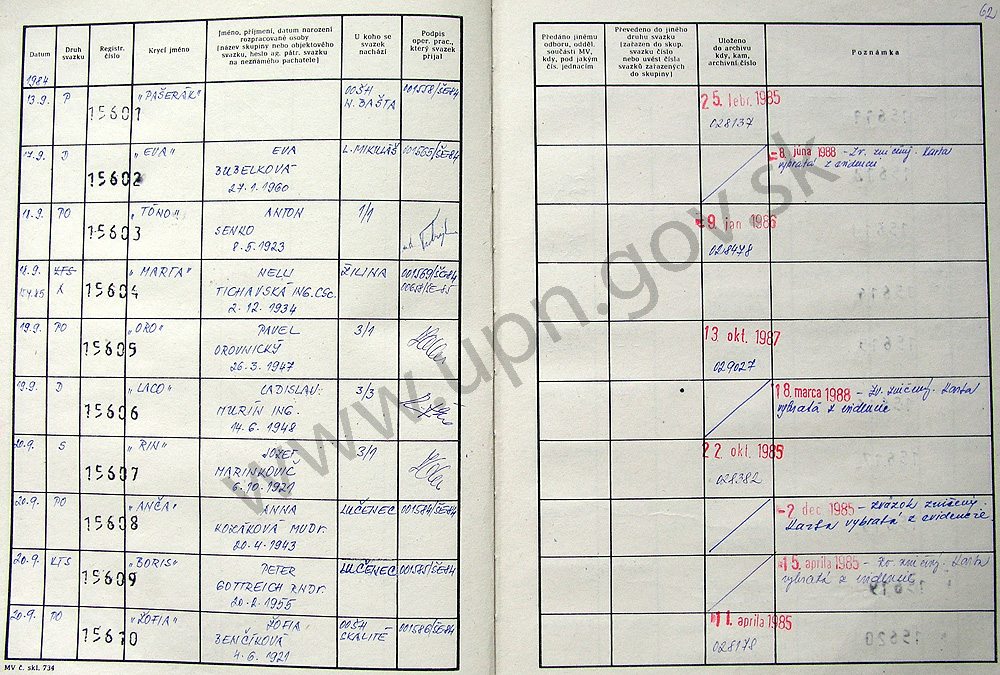 62
Datum
Druh svazku
Registr. číslo
Krycí jméno
Jméno, příjmení, datum narození
rozpracované osoby
(název skupiny nebo objektového
svazku, heslo ag. pátr. svazku
na neznámého pachatele)
U koho se
svazek
nachází
Podpis
oper. prac.,
který svazek
přijal
Předáno jinému
odboru, odděl.
součásti MV,
kdy, pod jakým
čís. jednacím
Převedeno do jiného
druhu svazku
(zařazen do skup.
svazku číslo
nebo uvést čísla
svazků zařazených
do skupiny)
Uloženo
do archivu
kdy, kam,
archivní číslo
Poznámka
1984
13.9. P 15601 "PAŠERÁK" OOŠH 001558/ŠE-84
N. BAŠTA
25. febr. 1985
028137
17.9. D 15602 "EVA" EVA L. MIKULÁŠ 001565/ŠE-84
BUBELKOVÁ
27.1.1960
-8. júna 1988 - Zv. zničený. Karta
vybratá z evidencie
18.9. PO 15603 "TÓNO" ANTON 1/1
SENKO
8.5.1923
-9. jan 1986
028478
18.9. KTS 15604 "MARTA" NELLI ŽILINA 001569/ŠE-84
TICHAVSKÁ ING. CSc.
2.12.1934
19.9. PO 15605 "ORO" PAVEL 3/1
OROVNICKÝ
26.3.1947
13. okt. 1987
029027
19.9. D 15606 "LACO" LADISLAV 3/3
MURÍN ING.
14.6.1948
18. marca 1988 - Zv. zničený. Karta
vybratá z evidencie
20.9. S 15607 "RIN" JOZEF 3/1
MARINKOVIČ
6.10.1921
22. okt. 1985
028382
20.9. PO 15608 "ANČA" ANNA LUČENEC 001584/ŠE-84
KORÁKOVÁ MUDr.
20.4.1943
-2. dec 1985 - Zväzok zničený.
Karta vybratá z evidencie
20.9. KTS 15609 "BORIS" PETER LUČENEC 001585/ŠE-84
GOTTREICH RNDr.
20.2.1955
15. apríla 1985 - Zv. zničený. Karta
vybratá z evidencie
20.9. PO 15610 "ŽOFIA" ŽOFIA OOŠH 001586/ŠE-84
BENČÍKOVÁ SKALITÉ
4.6.1921
11. apríla 1985
028178
MV č. skl. 734
www.upn.gov.sk